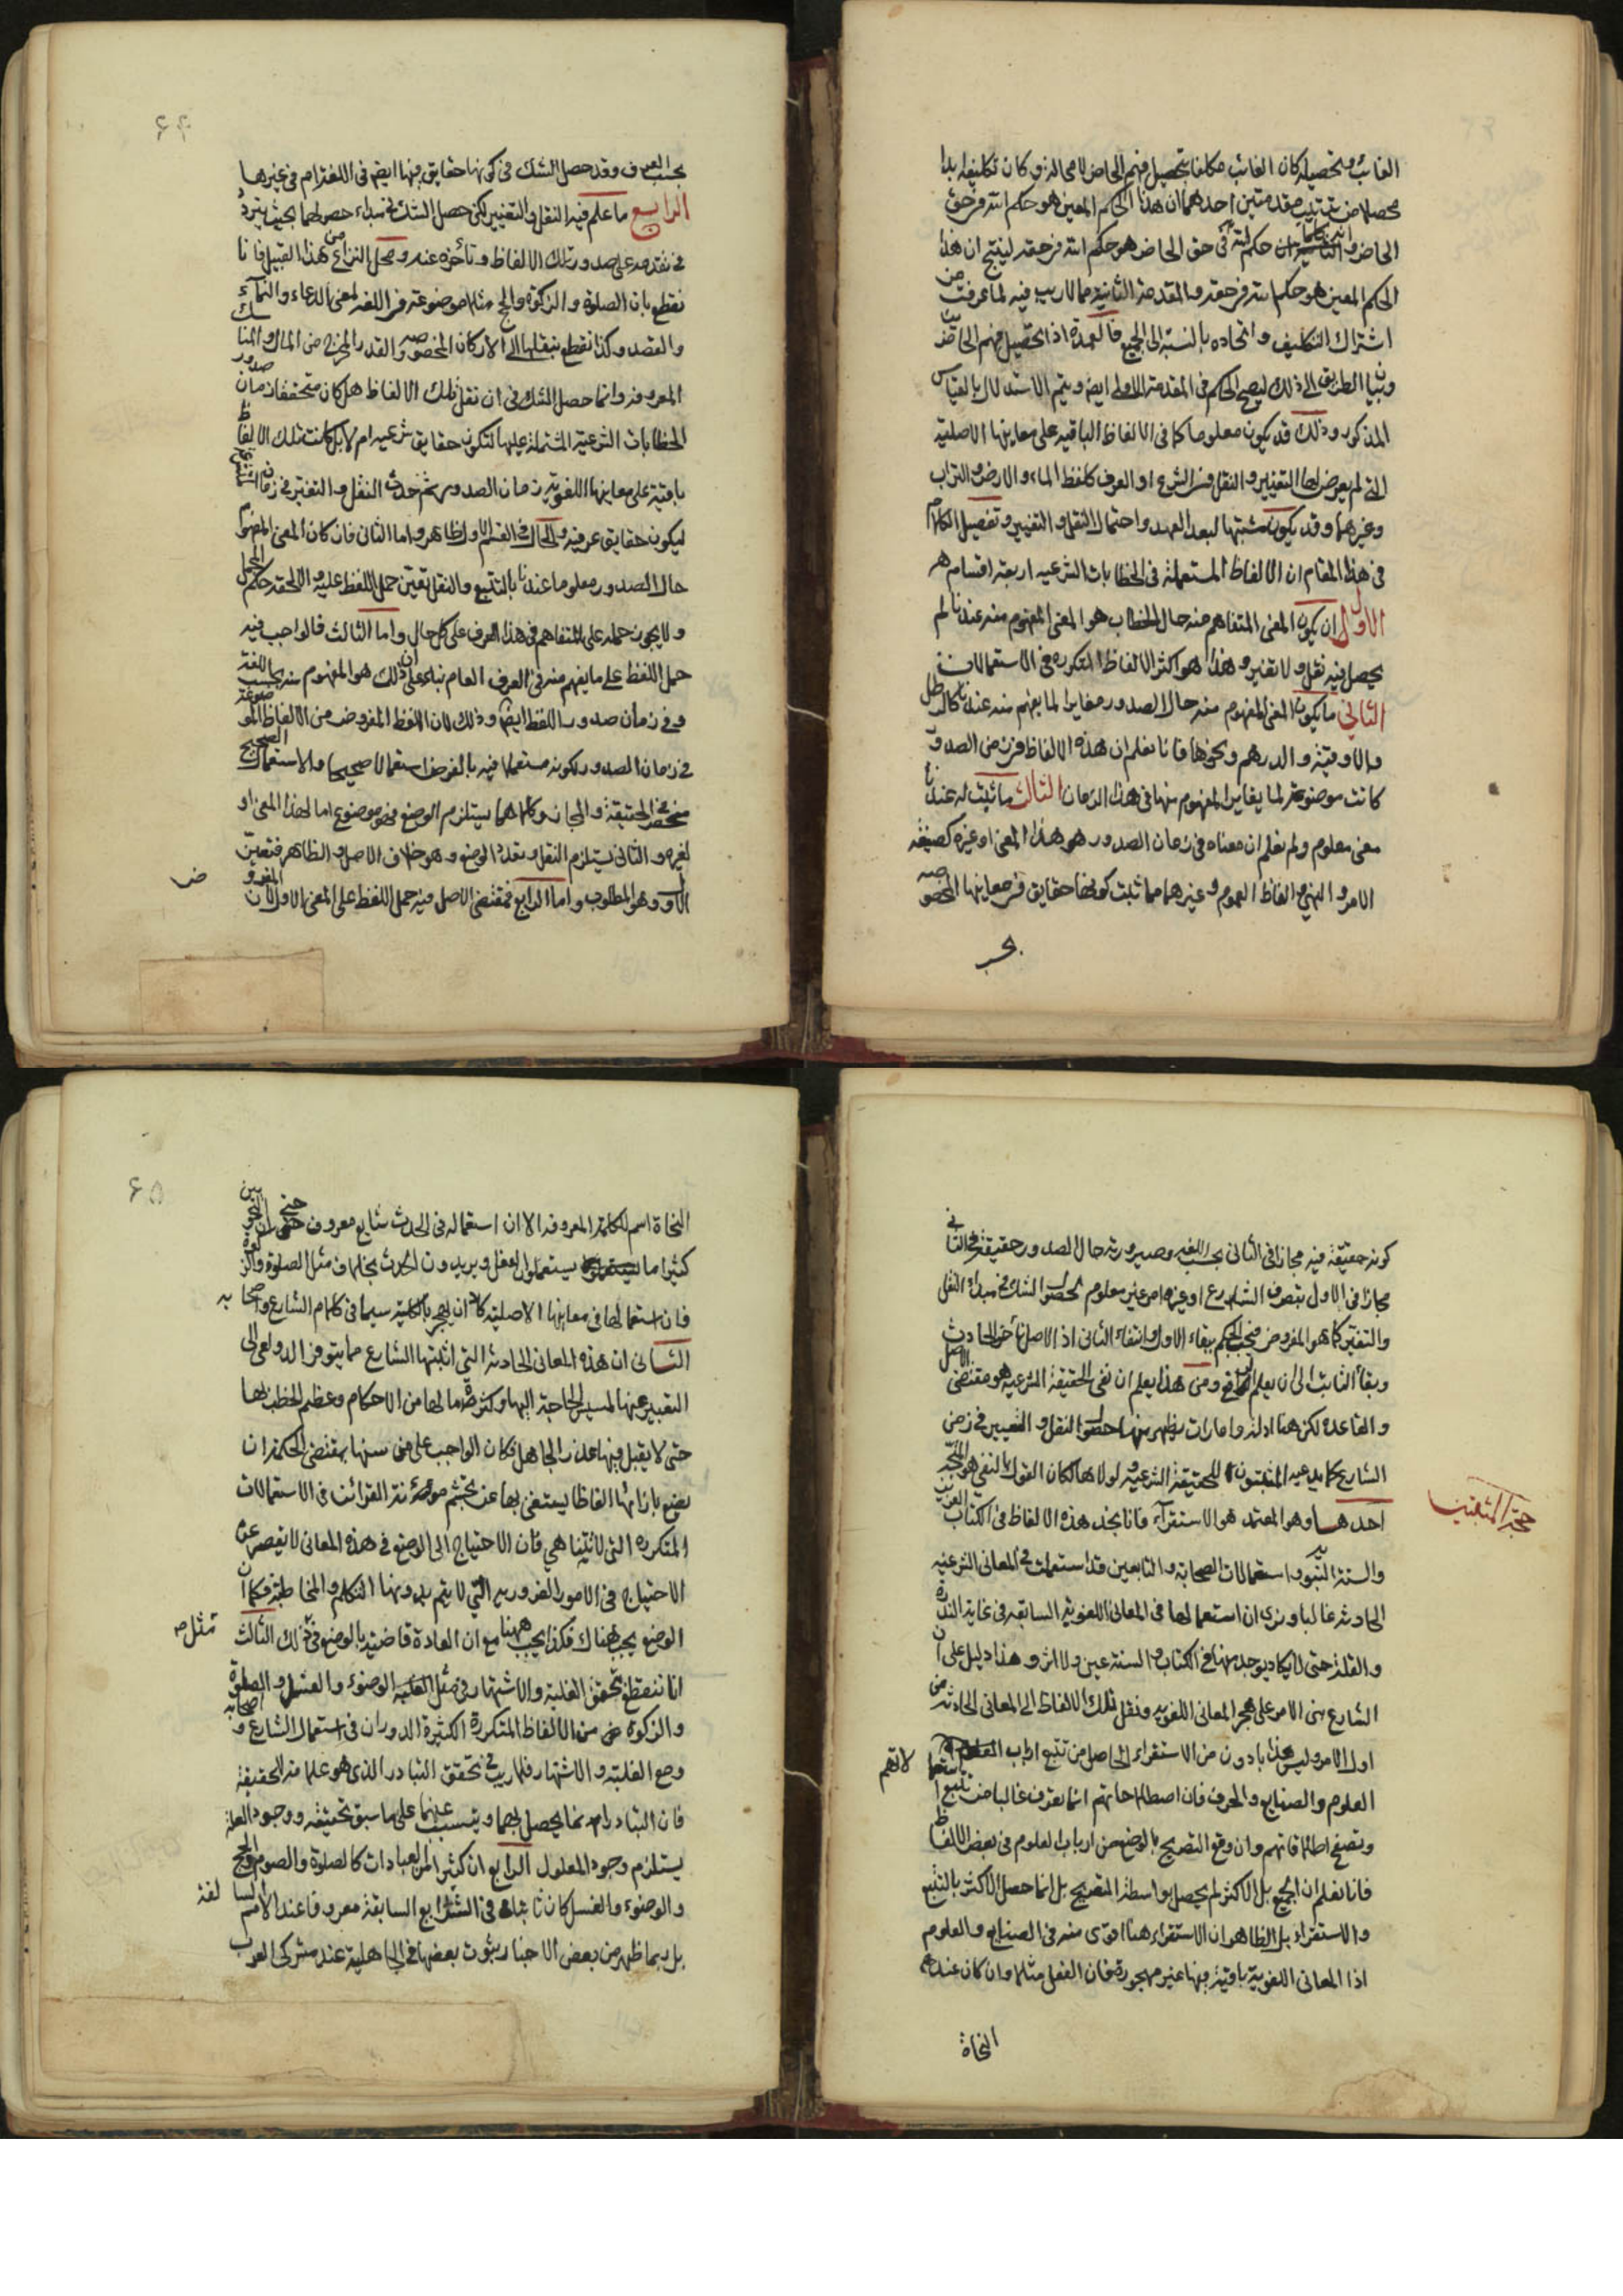 الغائب وتحصيله كان الغائب مكلفا بتحصيل فهم الحاضر لا محالة و كان تكليفه بدا
محصلا من ترتيب مقدمتين احدهما ان هذا الحكم المعين هو حكم الله في حق
الحاضر و الثانية ان كلما حكم الله في حق الحاضر هو حكم الله في حقه لينتج ان هذا
الحكم المعين هو حكم الله في حقه والمقدمة الثانية مما لا ريب فيه لما عرفت من
اشتراك التكليف واتحاده بالنسبة الى الجميع فالعمدة اذا تحصيل فهم الحاضر
وبيان الطريق الى ذلك ليصح الحكم في المقدمة الاولى ايضا ويتم الاستدلال بالقياس
المذكور وذلك قد يكون معلوما كما في الالفاظ الباقية على معانيها الاصلية
التي لم يعرض لها التغيير والنقل في الشرع او العرف كلفظ الماء والارض والتراب
وغيرهما وقد يكون مشتبها لبعد العهد واحتمال النقل والتغيير وتفصيل الكلام
في هذا المقام ان الالفاظ المستعملة في الخطابات الشرعية اربعة اقسام
الاول ان يكون المعنى المتفاهم منه حال الخطاب هو المعنى المفهوم منه عندنا لم
يحصل فيه نقل ولا تغير وهذا هو اكثر الالفاظ المتكررة في الاستعمالات
الثاني ما يكون المعنى المفهوم منه حال الصدور مغايرا لما يفهم منه عندنا كالرطل
والاوقية والدرهم ونحوها فانا نعلم ان هذه الالفاظ في زمن الصدور
كانت موضوعة لما يغاير المفهوم منها في هذا الزمان الثالث ما ثبت له عندنا
معنى معلوم ولم نعلم ان معناه في زمان الصدور هو هذا المعنى او غيره كصيغة
الامر والنهي والفاظ العموم وغيرهما مما ثبت كونها حقايق في معانيها المخصوصه
بحسب
۶۴
بحسب العرف وقد حصل الشك في كونها حقايق فيها ايضا في اللغة ام في غيرها
الرابع ما علم فيه النقل والتغيير لكن حصل الشك في مبداء حصولهما بحيث يتردد
في تقدمه على صدور تلك الالفاظ وتأخره عنه ومحل النزاع من هذا القبيل فانا
نقطع بان الصلوة والزكوة والحج مثلا موضوعة في اللغة لمعنى الدعاء والنماء
والقصد وكذا نقطع بنقلها الى الاركان المخصوصه والقدر المخرج من المال والمناسك
المعروفة وانما حصل الشك في ان نقل تلك الالفاظ هل كان متحققا زمان صدور
الخطابات الشرعية المشتملة عليها لتكون حقايق شرعية ام لا بل كانت تلك الالفاظ
باقية على معانيها اللغوية زمان الصدور ثم حدث النقل والتغير في زمان المتشرعة
ليكون حقايق عرفية والحال في القسم الاول ظاهر واما الثاني فان كان المعنى المفهوم
حال الصدور معلوما عندنا بالتتبع والنقل تعين حمل اللفظ عليه والا لحقه حكم المجمل
ولا يجوز حمله على المتفاهم في هذا العرف على كل حال واما الثالث فالواجب فيه
حمل اللفظ على ما يفهم منه في العرف العام بناء على ان ذلك هو المفهوم منه بحسب اللغة
وفي زمان صدور اللفظ ايضا وذلك لان اللفظ المفروض من الالفاظ الموضوعة
في زمان الصدور لكونه مستعملا فيه بالفرض استعمالا صحيحا والاستعمال الصحيح
منحصر في الحقيقة والمجاز وكلاهما يستلزم الوضع فهو موضوع اما لهذا المعنى او
لغيره والثاني يستلزم النقل وتعدد الوضع وهو خلاف الاصل والظاهر فتعين
الاول وهو المطلوب واما الرابع فمقتضى الاصل فيه حمل اللفظ على المعنى الاول لان المفروض
كونه حقيقة فيه مجازا في الثاني بحسب اللغة وصيرورته حال الصدور حقيقة في الثاني
مجازا في الاول بتصرف الشارع او غيره امر غير معلوم لحصول الشك في مبداء النقل
والتغير كما هو المفروض فيجب الحكم ببقاء الاول وانتفاء الثاني اذ الاصل تأخر الحادث
وبقاء الثابت الى ان يعلم الرافع ومن هذا يعلم ان نفي الحقيقة الشرعية هو مقتضى الاصل
والقاعدة لكن هنا ادلة وامارات يظهر منها حصول النقل والتغيير في زمن
الشارع كما يدعيه المثبتون للحقيقة الشرعية ولولاها لكان القول بالنفي هو المتجه
حجة المثبتين
احدها وهو المعتمد هو الاستقراء فانا نجد هذه الالفاظ في الكتاب العزيز
والسنة النبوية واستعمالات الصحابة والتابعين قد استعملت في المعاني الشرعية
الحادثة غالبا ونرى ان استعمالها في المعاني اللغوية السابقة في غاية الندرة
والقلة حتى لا يكاد يوجد منها في الكتاب والسنة عين ولا اثر وهذا دليل على ان
الشارع بنى الامر على هجر المعاني اللغوية ونقل تلك الالفاظ الى المعاني الحادثة من
اول الامر وليس هذا بادون من الاستقراء الحاصل من تتبع ارباب
العلوم والصنايع والحرف فان اصطلاحاتهم انما تعرف غالبا من تتبع استعمالاتهم
وتصفح اطلاقاتهم وان وقع التصريح بالوضع من ارباب العلوم في بعض الالفاظ
فانا نعلم ان الجميع بل الاكثر لم يحصل بواسطة التصريح بل انما حصل الاكثر بالتتبع
والاستقراء بل الظاهر ان الاستقراء هنا اقوى منه في الصنايع والعلوم
اذا المعاني اللغوية باقية فيها غير مهجورة فان الفعل مثلا وان كان عند
النحاة
۶۵
النحاة اسم للكلمة المعروفة الا ان استعماله في الحدث شايع معروف حتى ان النحويين
كثيرا ما يستعملون الفعل ويريدون الحدث بخلاف مثل الصلوة والزكوة
فان استعمالها في معانيها الاصلية كاد ان يهجر بالكلية سيما في كلام الشارع واصحابه
الثاني ان هذه المعاني الحادثة التي اثبتها الشارع مما يتوفر الدواعي الى
التعبير عنها لمسيس الحاجة اليها وكثرة ما لها من الاحكام وعظم الخطب بها
حتى لا يقبل فيها عذر الجاهل فكان الواجب على من سنها بمقتضى الحكمة ان
يضع بازائها الفاظا يستغنى بها عن تجشم مؤنة القرائن في الاستعمالات
المتكررة التي لا تتناهى فان الاحتياج الى الوضع في هذه المعاني لا يقصر عن
الاحتياج في الامور الضرورية التي لا يتم بدونها التكلم والمخاطبة فكما ان
الوضع يجب هناك فكذا يجب ههنا مع ان العادة قاضية بالوضع في مثل ذلك الثالث
انا نقطع بتحقق الغلبة والاشتهار في مثل الوضوء والغسل والصلوة
والزكوة من الالفاظ المتكررة الكثيرة الدوران في استعمال الشارع واصحابه
ومع الغلبة والاشتهار فلا ريب في تحقق التبادر الذي هو علامة الحقيقة
فان التبادر انما يحصل بهما ويتسبب عنهما على ما سبق تحقيقه ووجود العلة
يستلزم وجود المعلول الرابع ان كثيرا من العبادات كالصلوة والصوم والحج
والوضوء والغسل كان ثابتا في الشرايع السابقة معروفا عند الامم السالفة
بل ربما ظهر من بعض الاخبار ثبوت بعضها في الجاهلية عند مشركي العرب